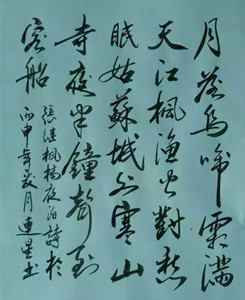 月落烏啼霜滿
天江楓漁火對愁
眠姑蘇城外寒山
寺夜半鐘聲到
客船
張継楓橋夜泊詩於
丙申年月連星書